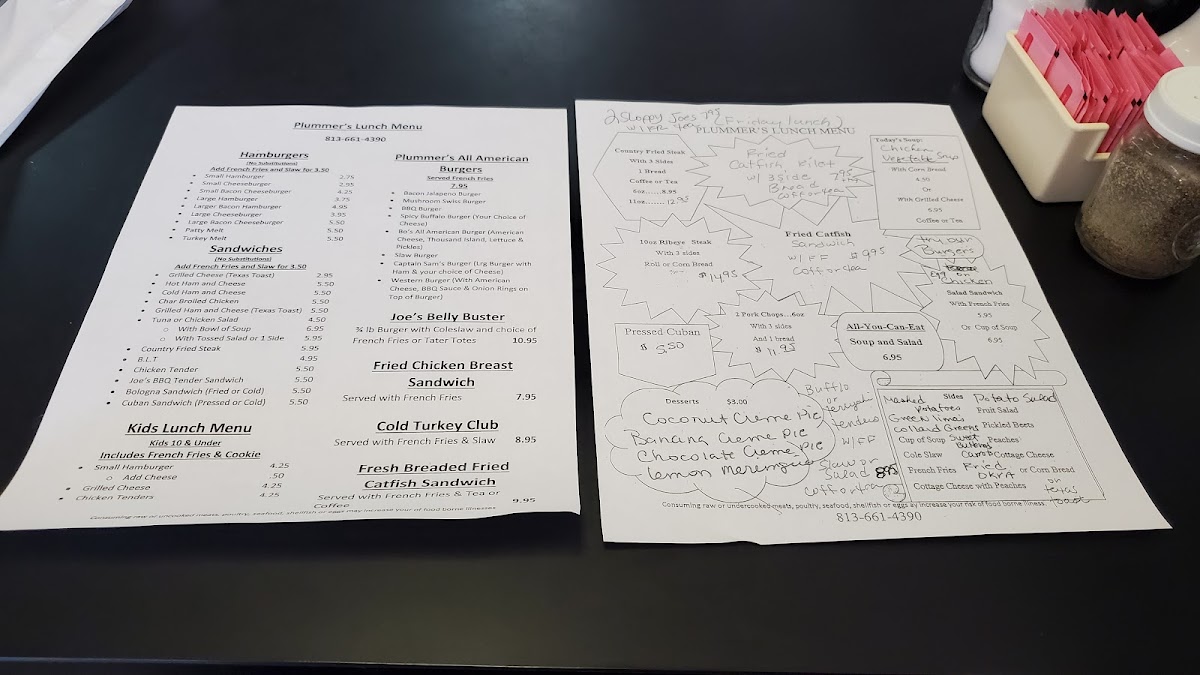 Plummer's Lunch Menu
813-661-4390
Hamburgers
(No Substitutions)
Add French Fries and Slaw for 3.50
Small Hamburger 2.75
Small Cheeseburger 2.95
Small Bacon Cheeseburger 4.25
Large Hamburger 3.75
Larger Bacon Hamburger 4.95
Large Cheeseburger 3.95
Large Bacon Cheeseburger 5.50
Patty Melt 5.50
Turkey Melt 5.50
Sandwiches
(No Substitutions)
Add French Fries and Slaw for 3.50
Grilled Cheese (Texas Toast) 2.95
Hot Ham and Cheese 5.50
Cold Ham and Cheese 5.50
Char Broiled Chicken 5.50
Grilled Ham and Cheese (Texas Toast) 5.50
Tuna or Chicken Salad 4.50
With Bowl of Soup 6.95
With Tossed Salad or 1 Side 5.95
Country Fried Steak 5.95
B.L.T 4.95
Chicken Tender 5.50
Joe's BBQ Tender Sandwich 5.50
Bologna Sandwich (Fried or Cold) 5.50
Cuban Sandwich (Pressed or Cold) 5.50
Kids Lunch Menu
Kids 10 & Under
Includes French Fries & Cookie
Small Hamburger 4.25
Add Cheese .50
Grilled Cheese 4.25
Chicken Tenders 4.25
Plummer's All American
Burgers
Served French Fries
7.95
Bacon Jalapeno Burger
Mushroom Swiss Burger
BBQ Burger
Spicy Buffalo Burger (Your Choice of
Cheese)
Bo's All American Burger (American
Cheese, Thousand Island, Lettuce &
Pickles)
Slaw Burger
Captain Sam's Burger (Lrg Burger with
Ham & your choice of Cheese)
Western Burger (With American
Cheese, BBQ Sauce & Onion Rings on
Top of Burger)
Joe's Belly Buster
¾ lb Burger with Coleslaw and choice of
French Fries or Tater Totes 10.95
Fried Chicken Breast
Sandwich
Served with French Fries 7.95
Cold Turkey Club
Served with French Fries & Slaw 8.95
Fresh Breaded Fried
Catfish Sandwich
Served with French Fries & Tea or
Coffee 9.95
Consuming raw or undercooked meats, poultry, seafood, shellfish or eggs may increase your risk of food borne illnesses
2 Sloppy Joes 7.95 (Friday lunch)
w/ FF Tea
PLUMMER'S LUNCH MENU
Country Fried Steak
With 3 Sides
1 Bread
Coffee or Tea
6oz.....8.95
11oz.......12.95
Fried
Catfish Filet
w/ 3 side 7.95
Bread
Cofforтea
Today's Soup:
Chicken
Vegetable Soup
With Corn Bread
4.50
Or
With Grilled Cheese
6.95
Coffee or Tea
10oz Ribeye Steak
With 3 sides
Roll or Corn Bread
$14.95
Fried Catfish
Sandwich
w/ FF $9.95
Cofforтea
Try our
Burgers
Egg or
Chicken
Salad Sandwich
With French Fries
5.95
Or Cup of Soup
6.95
Pressed Cuban
$ 5.50
2 Pork Chops...6oz
With 3 sides
And 1 bread
$ 11.95
All-You-Can-Eat
Soup and Salad
6.95
Desserts $3.00
Coconut Creme Pie
Banana Creme Pie
Chocolate Creme Pie
Lemon Meringue
Bufflo
or
Teriyaki
Tenders
w/ FF
Slaw or
Salad 8.95
Cofforтea
Sides
Mashed Potatoes
Potato Salad
Green Lima's
Fruit Salad
Collard Greens
Pickled Beets
Cup of Soup
Sweet
Peaches
Cole Slaw
Cottage Cheese
French Fries
Fried
Okra
or Corn Bread
Cottage Cheese with Peaches
or
Texas
Toast
Consuming raw or undercooked meats, poultry, seafood, shellfish or eggs ay increase your risk of food borne illness.
813-661-4390